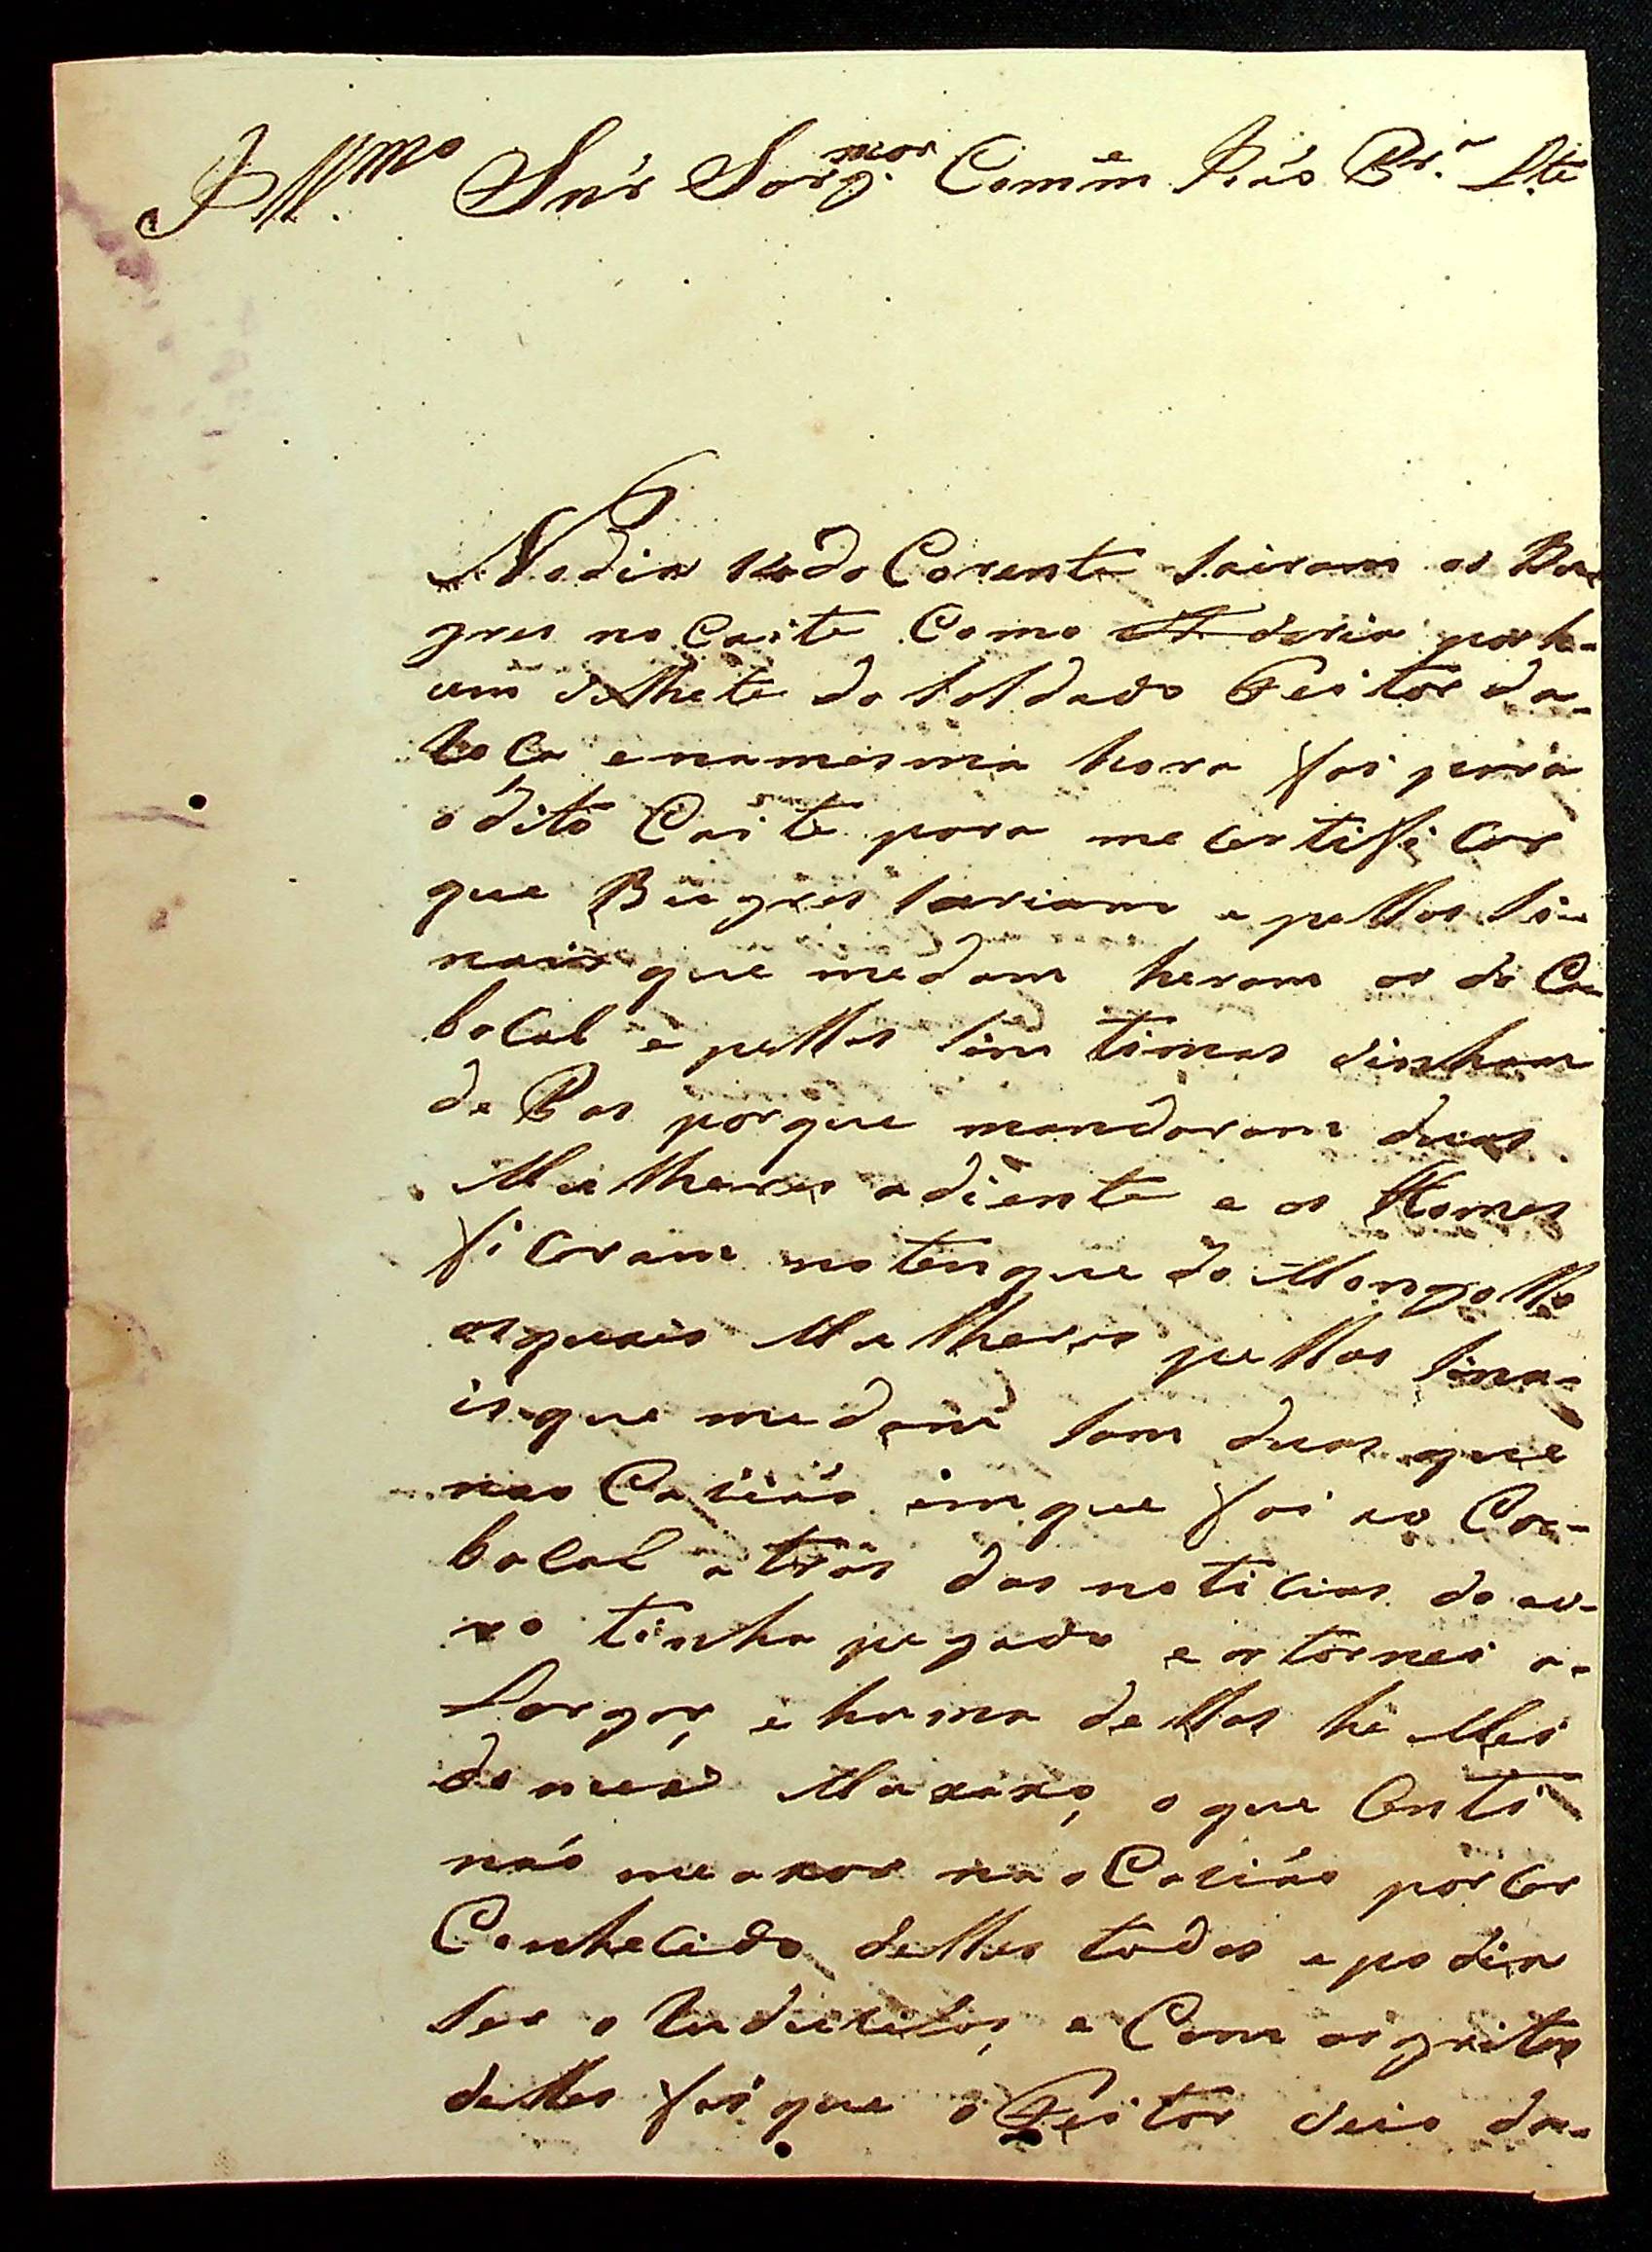 Illmo Snr Sarg.mor Comme Joáo Pr.a Lte
No dia 14 do Corente sairam os Bu-
gres no Caite Como veria por h-
um bilhete do soldado Feitor da-
a namesma hora foi para
o dito Caite para me certificar
que Bugres seriam e pellos si-
nais que medam heram os do Ca-
basal e pellos sim timas vinham
de Pas porque mandaram duas
Mulheres adiente e os Homes
ficaram no tenque do Monjollo
as quais Mulheres pellos sina-
is que me dam sam duas que
nao Caciáo em que foi ao Ca-
basal atras das noticias do ou-
ro tinha pegado e as tornei a-
largar, e huma dellas he Mei
do meu, o que Senti
náo me axar na o Caciáo por ser
Conhecido delles todos e podia
ser o Induzilos, e Com os gritos
delles foi que o Feitor veio da-